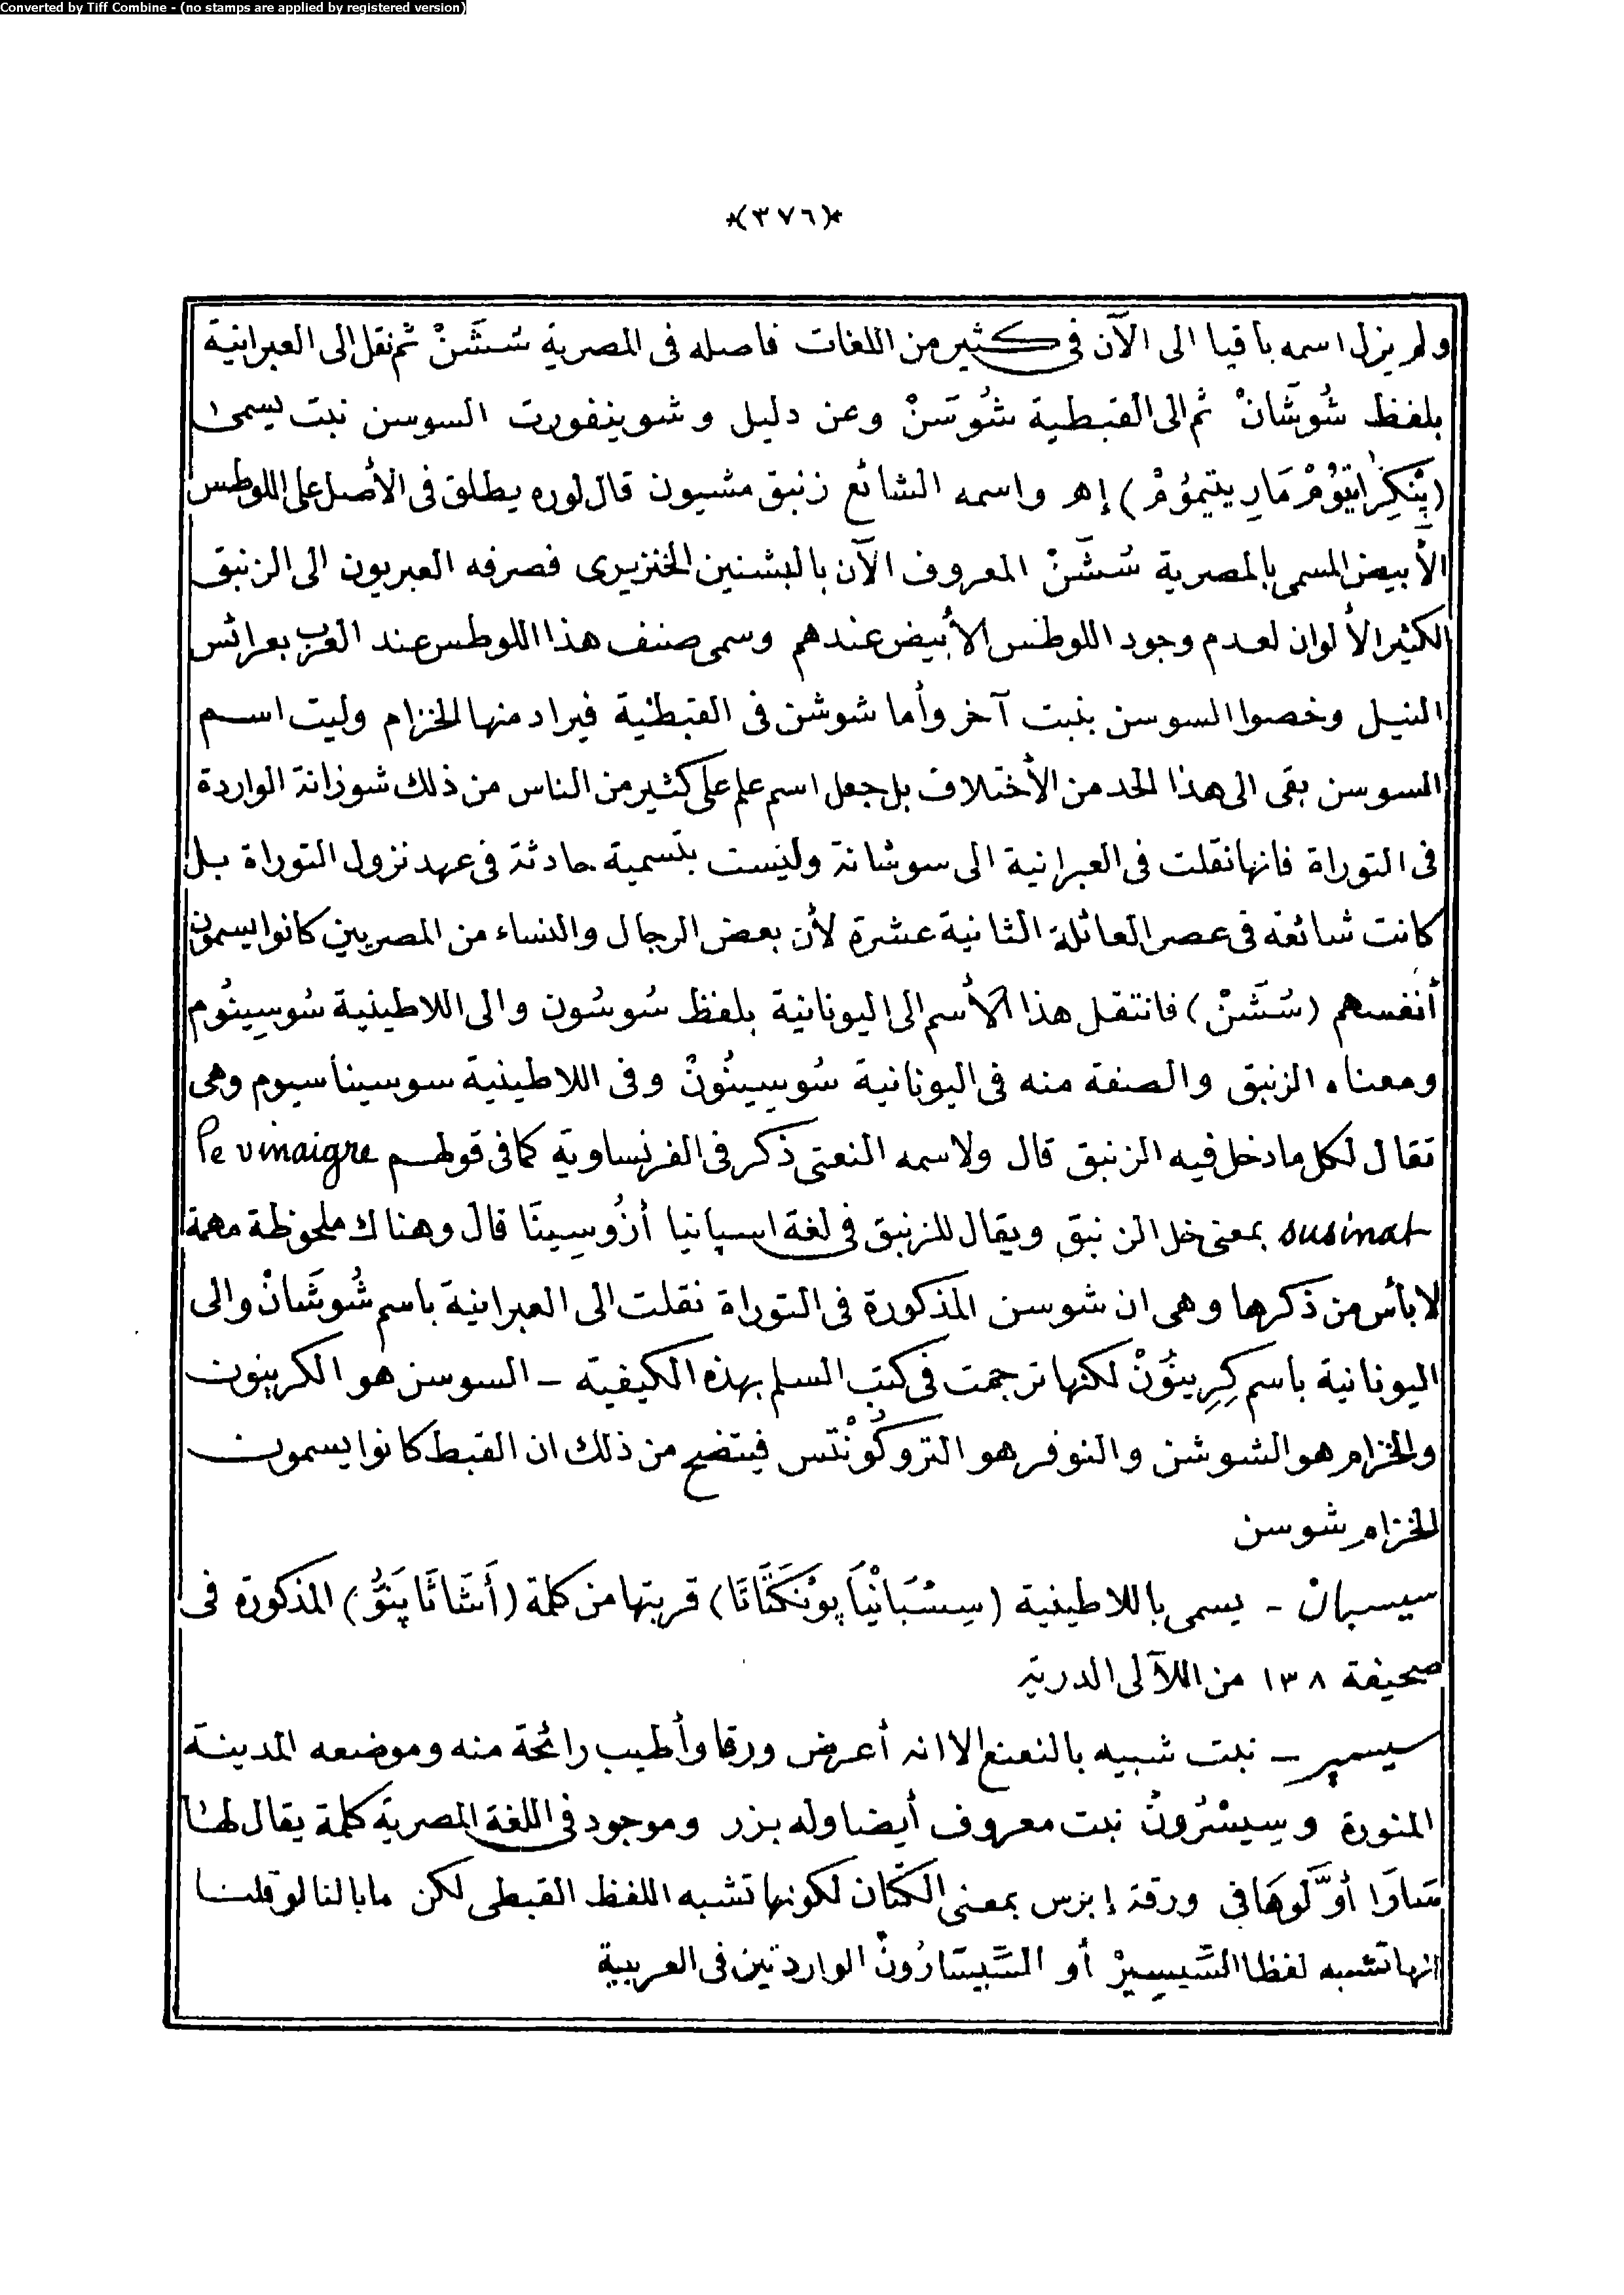 Converted by Tiff Combine - (no stamps are applied by registered version)
*(٣٧٦)*
ولم يزل اسمه باقيا الى الآن فى كثير من اللغات فاصله فى المصرية سُشَنْ ثم نقل الى العبرانية
بلفظ شُوشَانْ ثم الى القبطية شُوسَنْ وعن دليل وشوينفورت السوسن نبت يسمى
(بَنْكِرَاتِيُومْ مَارِيتِيمُومْ) إهـ واسمه الشائع زنبق مشيون قال لوره يطلق فى الأصل على اللوطس
الأبيض المسمى بالمصرية سُشَنْ المعروف الآن بالبشنين الخنزيرى فصرفه العبريون الى الزنبق
الكثير الألوان لعدم وجود اللوطس الأبيض عندهم وسمى صنف هذا اللوطس عند العرب بعرائس
النيل وخصوا السوسن بنبت آخر وأما شوشن فى القبطية فيراد منها الخزام وليت اسم
السوسن بقى الى هذا الحد من الأختلاف بل جعل اسم علم على كثير من الناس من ذلك شوزانة الواردة
فى التوراة فانها نقلت فى العبرانية الى سوشانة وليست بتسمية حادثة فى عهد نزول التوراة بل
كانت شائعة فى عصر العائلة الثانية عشرة لأن بعض الرجال والنساء من المصريين كانوا يسمون
أنفسهم (سُشَنْ) فانتقل هذا الأسم الى اليونانية بلفظ سُوسُون والى اللاطينية سُوسِينُوم
ومعناه الزنبق والصفة منه فى اليونانية سُوسِينُونْ وفى اللاطينية سوسيناسيوم وهى
تقال لكل ما دخل فيه الزنبق قال ولاسمه النعتى ذكر فى الفرنساوية كما فى قولهم le vinaigre
susinat بمعنى خل الزنبق ويقال للزنبق فى لغة اسپانيا أزُوسِينَا قال وهناك ملحوظة مهمة
لا بأس من ذكرها وهى ان شوسن المذكورة فى التوراة نقلت الى العبرانية باسم شُوشَانْ والى
اليونانية باسم كِرِينُونْ لكنها ترجمت فى كتب السلم بهذه الكيفية - السوسن هو الكرينون
والخزام هو الشوشن والنوفر هو التروكُونْتس فيتضح من ذلك ان القبط كانوا يسمون
الخزام شوسن
سيسبان - يسمى باللاطينية (سِسْبَانْيَا پونَكْتَاتَا) قربتها من كلمة (أَشَاتَا پَنَوُّ) المذكورة فى
صحيفة ١٣٨ من اللآلى الدرية
سيسمبر - نبت شبيه بالنعنع الا انه أعرض ورقا وأطيب رائحة منه وموضعه المدينة
المنورة وسِيسْرُونْ نبت معروف أيضا وله بزر وموجود فى اللغة المصرية كلمة يقال لها
سَارَا أوَّلوهَا فى ورقة إبرس بمعنى الكتان لكونها تشبه اللفظ القبطى لكن ما بالنا لو قلنا
انها تشبه لفظا السَّيسِيرْ أو السَّيسَارُونْ الواردتين فى العربية